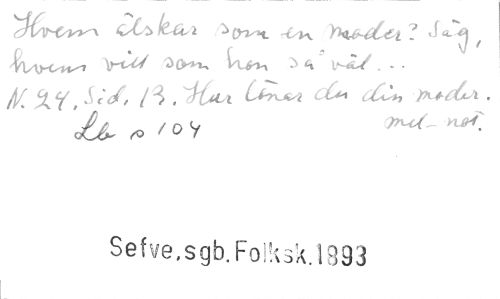 Hvem älskar som en moder? Säg,
hvem vill som hon så väl...
N. 24. Sid. 13. Hur lönar du din moder.
mel-not.
Lb s 104
Sefve, sgb. Folksk. 1893